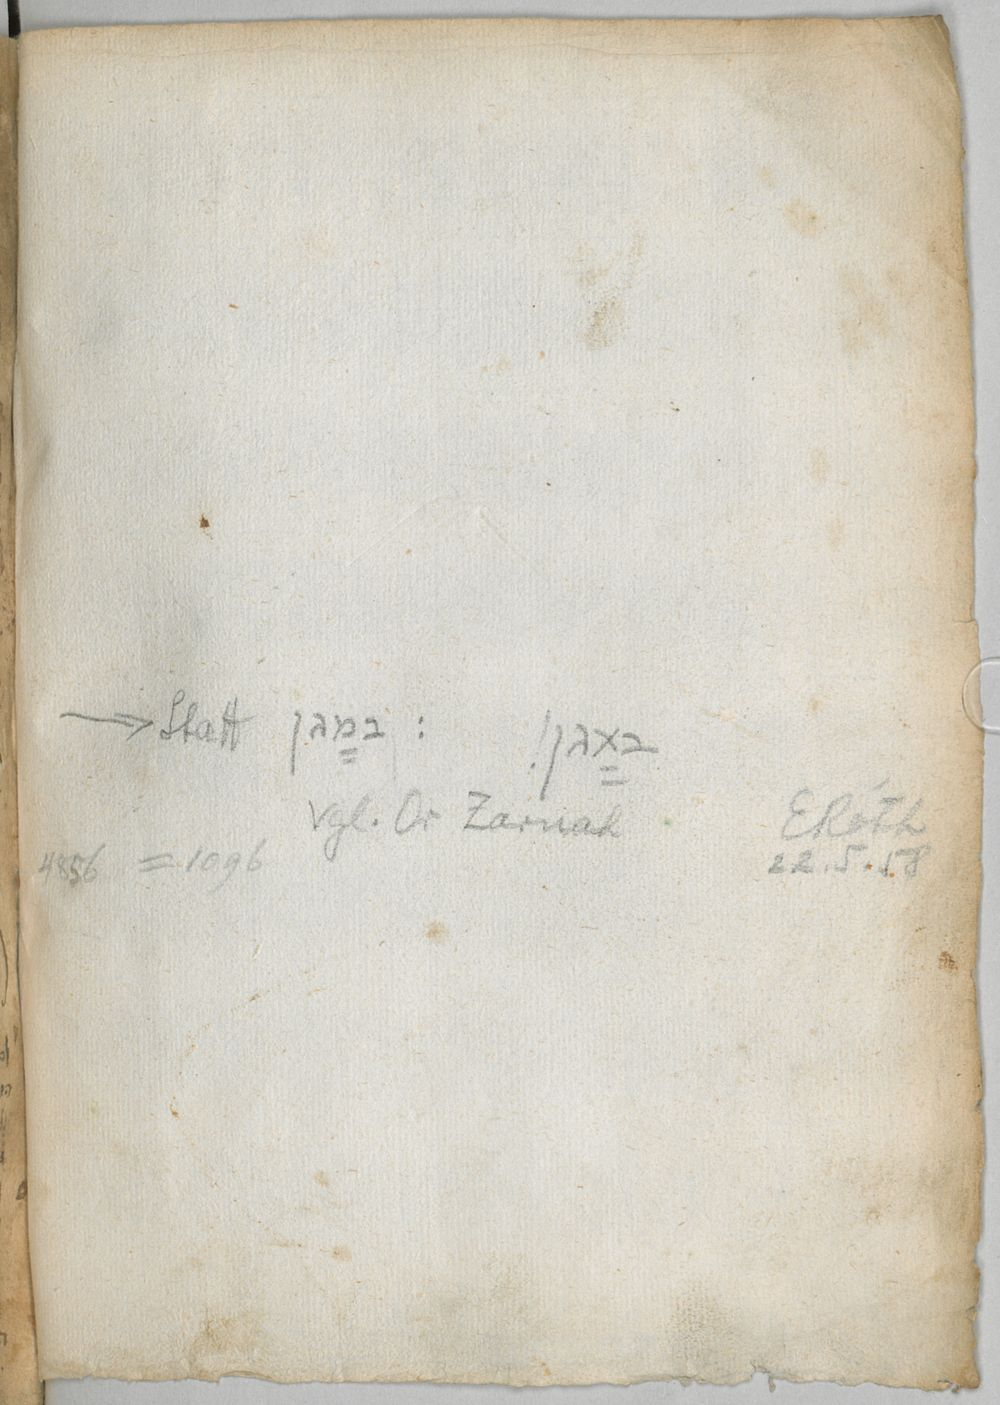 → Statt במגן : באגן!
vgl. Or Zaruah
ERóth
4856 = 1096
22.5.58